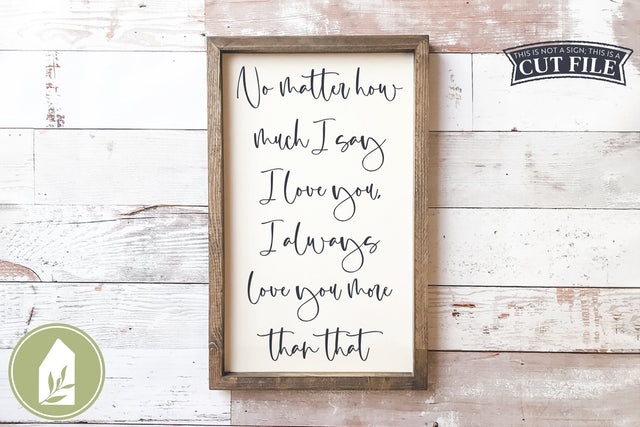 THIS IS NOT A SIGN; THIS IS A
CUT FILE
No matter how
much I say
I love you,
I always
love you more
than that